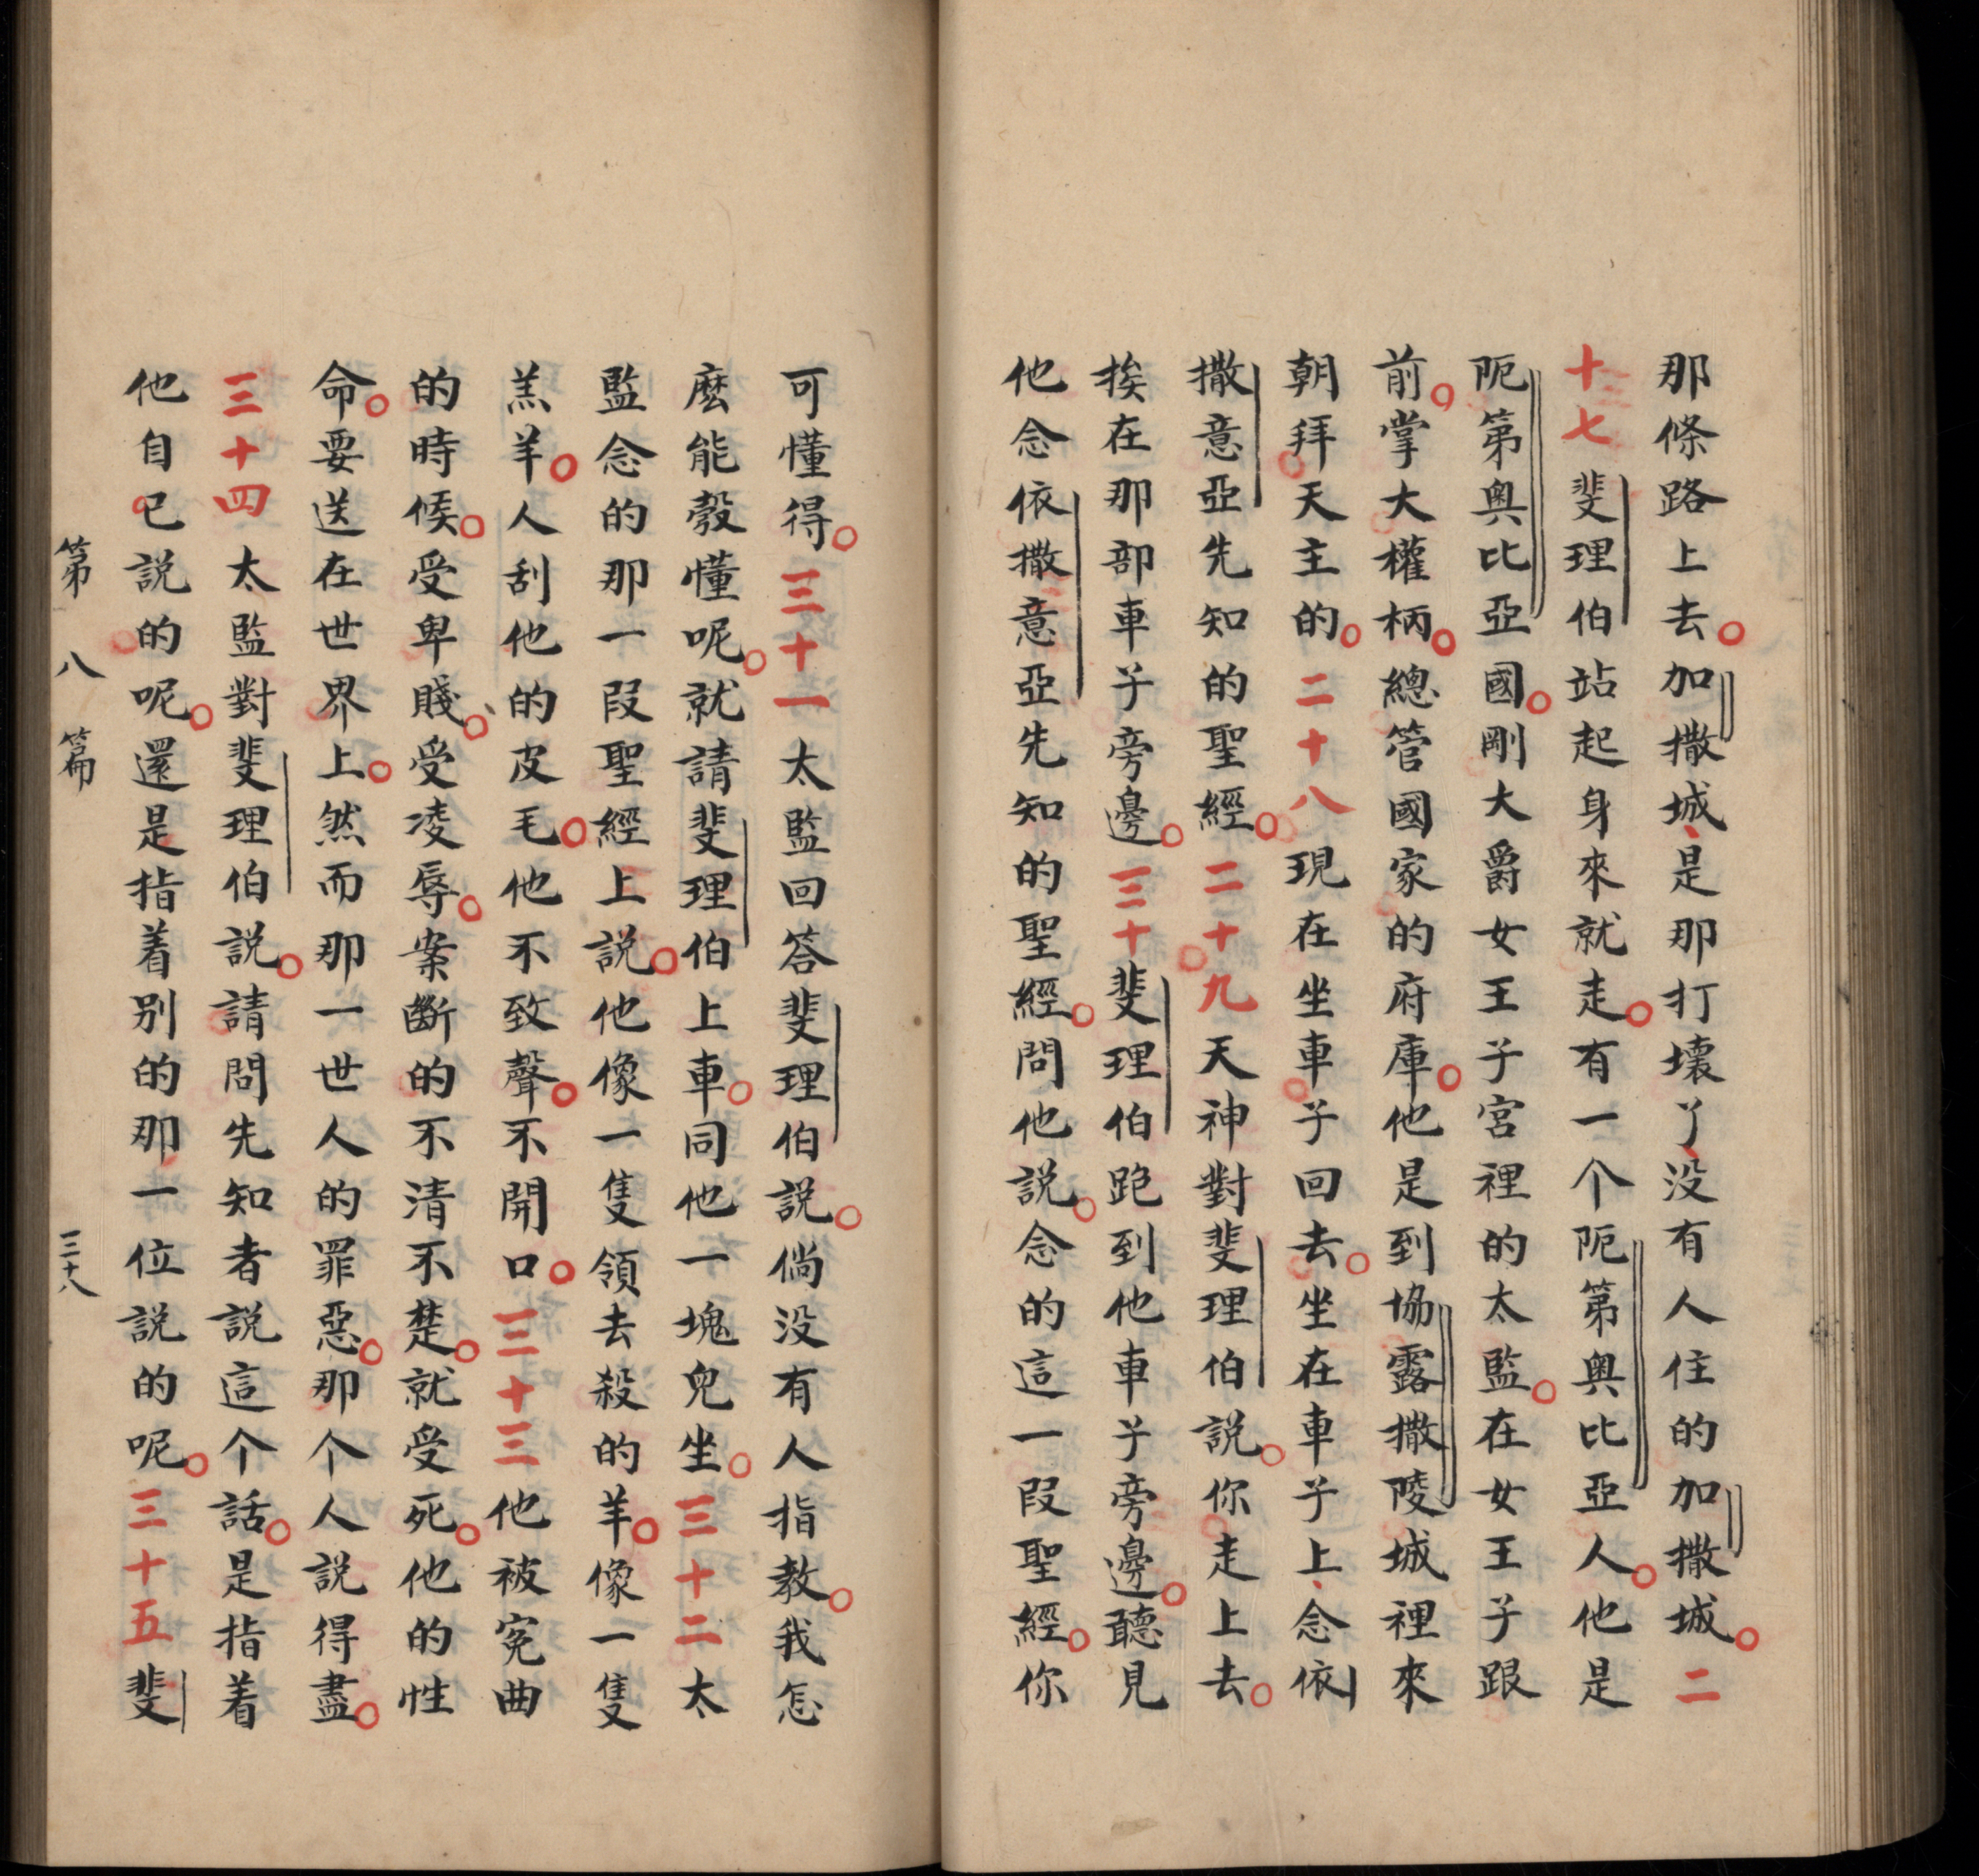 那條路上去。加撒城、是那打壞了、没有人住的加撒城。二
十七斐理伯站起身來就走。有一个阨第奥比亞人。他是
阨第奥比亞國。剛大爵女王子宮裡的太監。在女王子跟
前。掌大權柄。總管國家的府庫。他是到協露撒陵城裡來
朝拜天主的。二十八現在坐車子回去。坐在車子上、念依
撒意亞先知的聖經。二十九天神對斐理伯説。你走上去。
挨在那部車子旁邊。三十斐理伯跑到他車子旁邊。聽見
他念依撒意亞先知的聖經。問他説。念的這一段聖經。你
可懂得。三十一太監回答斐理伯説。倘没有人指教。我怎
麽能彀懂呢。就請斐理伯上車。同他一塊兒坐。三十二太
監念的那一段聖經上説。他像一隻領去殺的羊。像一隻
羔羊。人刮他的皮毛。他不致聲。不開口。三十三他被冤曲
的時候。受卑賤。受凌辱。案斷的不清不楚。就受死。他的性
命。要送在世界上。然而那一世人的罪惡。那个人説得盡。
三十四太監對斐理伯説。請問先知者説這个話。是指着
他自已説的呢。還是指着别的那一位説的呢。三十五斐
第八篇 三十八